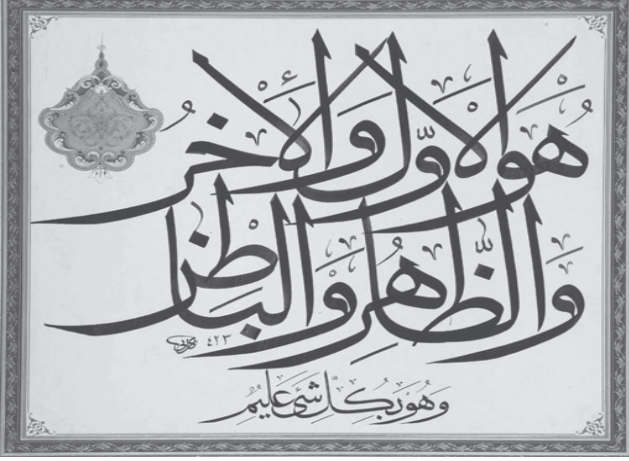 هُوَ الْأَوَّلُ وَالْأٰخِرُ
وَالظَّاهِرُ وَالْبَاطِنُ
٤٢٣
وَهُوَ بِكُلِّ شَئٍ عَلِيمٌ